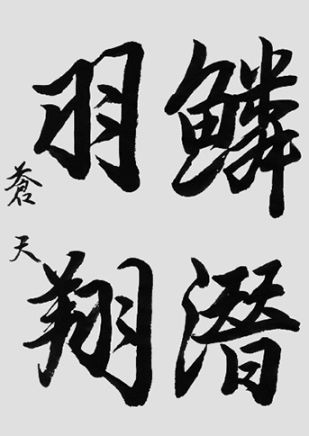 鱗潛
羽翔
蒼天